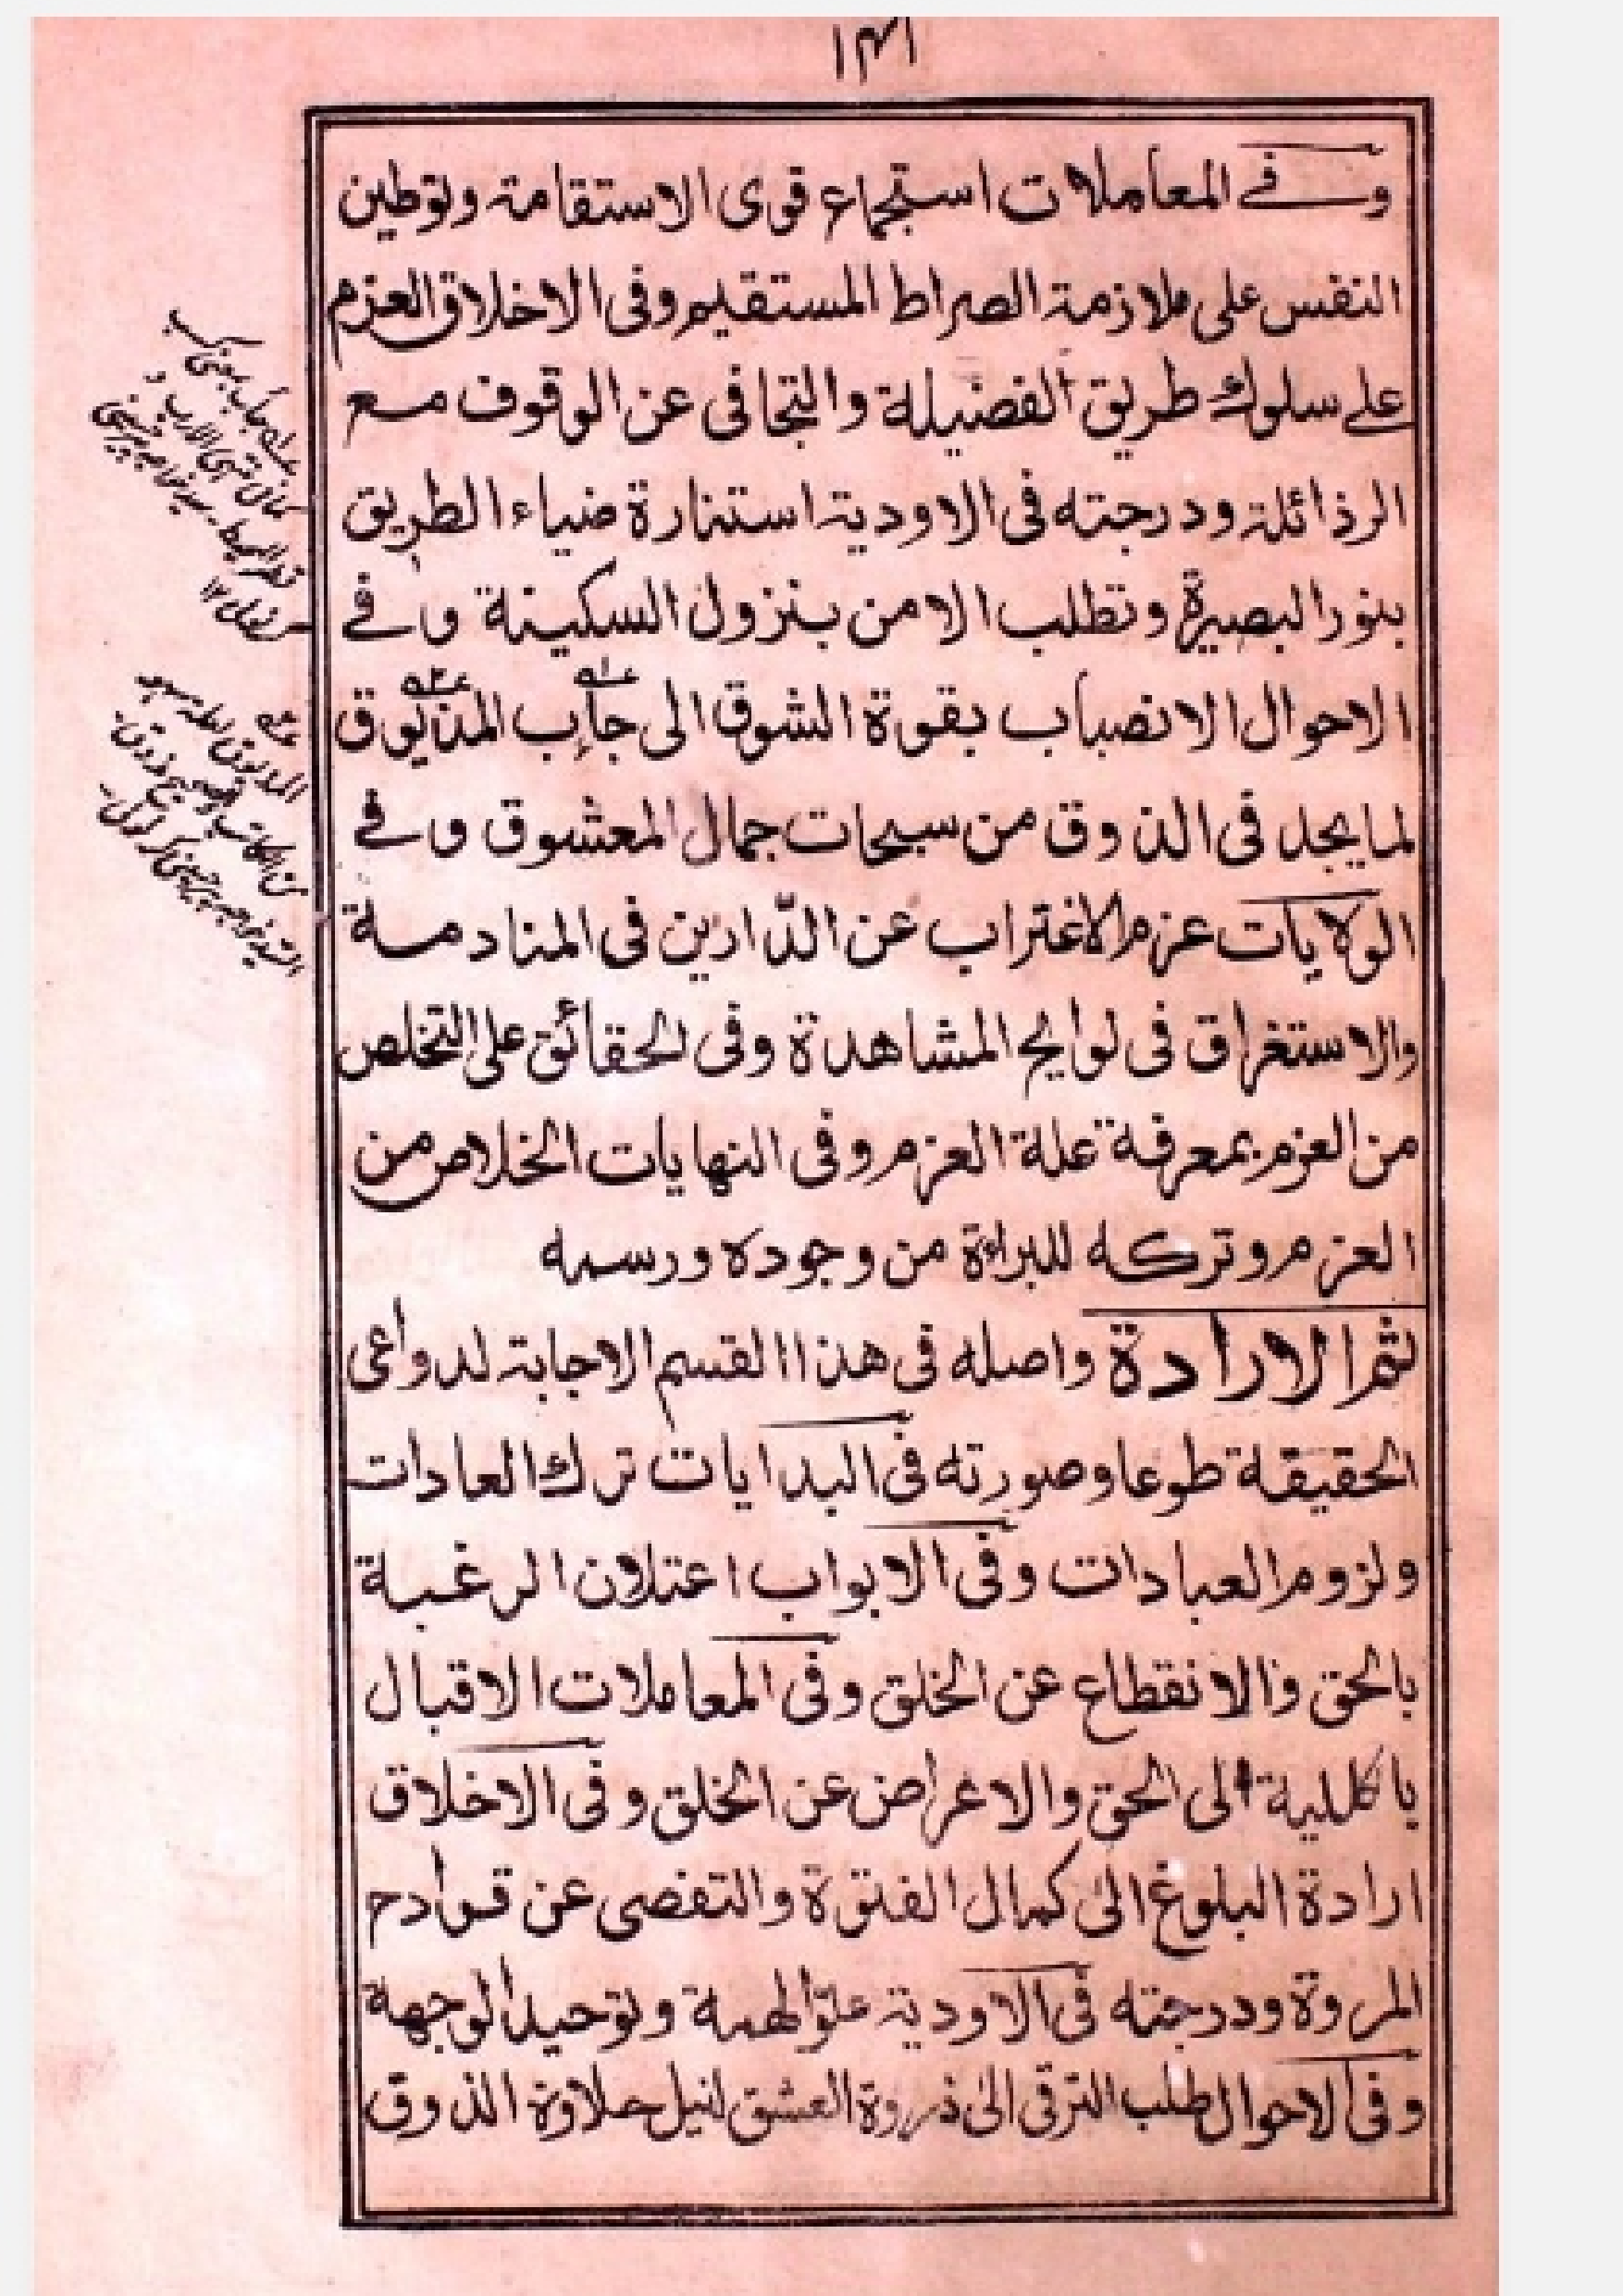 ١٣١
وفے المعاملات استجماع قوى الاستقامة وتوطين
النفس على ملازمة الصراط المستقيم وفى الاخلاق العزم
علے سلوك طريق الفضيلة والتجافى عن الوقوف مع
الرذائلة ودرجته فى الاودية استنارة ضياء الطريق
بنور البصيرة وتطلب الامن بنزول السكينة وفے
الاحوال الانصباب بقوة الشوق الى جأب المذيوق
لما يجد فى الذوق من سبحات جمال المعشوق وفے
الولايات عزم الاغتراب عن الدّارين فى المنادمة
والاستغراق فى لوايح المشاهدة وفى الحقائق على التخلص
من العزم بمعرفة علة العزم وفى النهايات الخلاص من
العزم وتركه للبراءة من وجوده ورسمه
ثم الارادة واصله فى هذا القسم الاجابة لدواعى
الحقيقة طوعا وصورته فى البدايات ترك العادات
ولزوم العبادات وفى الابواب اعتلان الرغبة
بالحق والانقطاع عن الخلق وفى المعاملات الاقبال
بالكلية الى الحق والاعراض عن الخلق وفى الاخلاق
ارادة البلوغ الى كمال الفتوة والتفصى عن قوادح
المروة ودرجته فى الاودية علوّ الهمة وتوحيد الوجهة
وفى الاحوال طلب الترقى الى ذروة العشق لنيل حلاوة الذوق